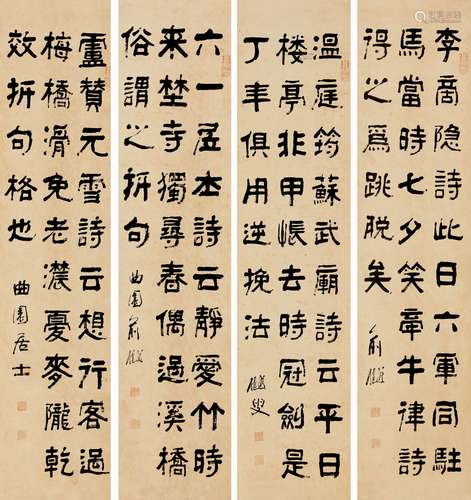 李商隐詩此日六軍同駐
馬當時七夕笑牽牛律詩
得之爲跳脫矣
俞樾
溫庭筠蘇武廟詩云平日
楼亭非甲帳去時冠劍是
丁年俱用逆挽法
樾叟
六一孟本詩云靜愛竹時
来埜寺獨尋春偶過溪橋
俗謂之拆句
曲園俞樾
盧贊元雪詩云想行客過
梅橋滑免老濃憂麥隴乾
效拆句格也
曲園居士